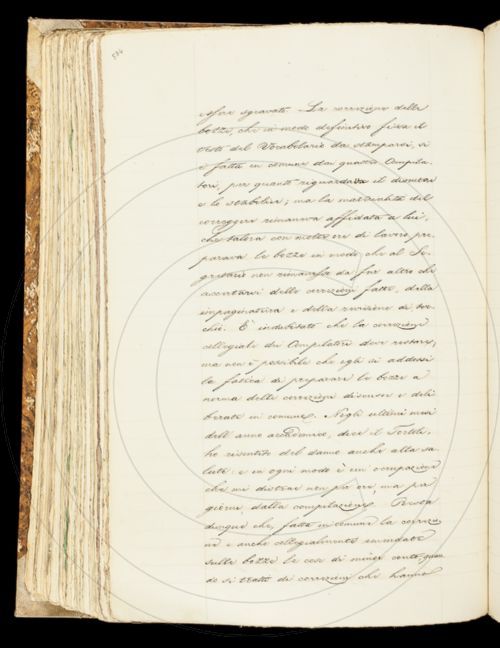 534
esser sgravato. La correzione delle
bozze, che in modo definitivo fissa il
testo del Vocabolario da stamparsi, si
è fatta in comune dai quattro Compila-
tori, per quanto riguardava il discutere
e lo stabilire; ma la materialità del
correggere rimaneva affidata a lui,
che talora con molte ore di lavoro pre-
parava le bozze in modo che al Se-
gretario non rimanesse da far altro che
accertarsi delle correzioni fatte, della
impaginatura e della revisione di tor-
chio. È indubitato che la correzione
collegiale dei Compilatori deve restare;
ma non è possibile che egli si addossi
la fatica di preparare le bozze a
norma delle correzioni discusse e deli-
berate in comune. Negli ultimi mesi
dell'anno accademico, dice il Tortoli,
ho risentito del danno anche alla sa-
lute: e in ogni modo è un'occupazione
che mi distrae non per ore, ma per
giorni, dalla compilazione. Resta
dunque che, fatta in comune la correzio-
ne e anche collegialmente emendate
sulle bozze le cose di minor conto, quan-
do si tratti di correzioni che hanno